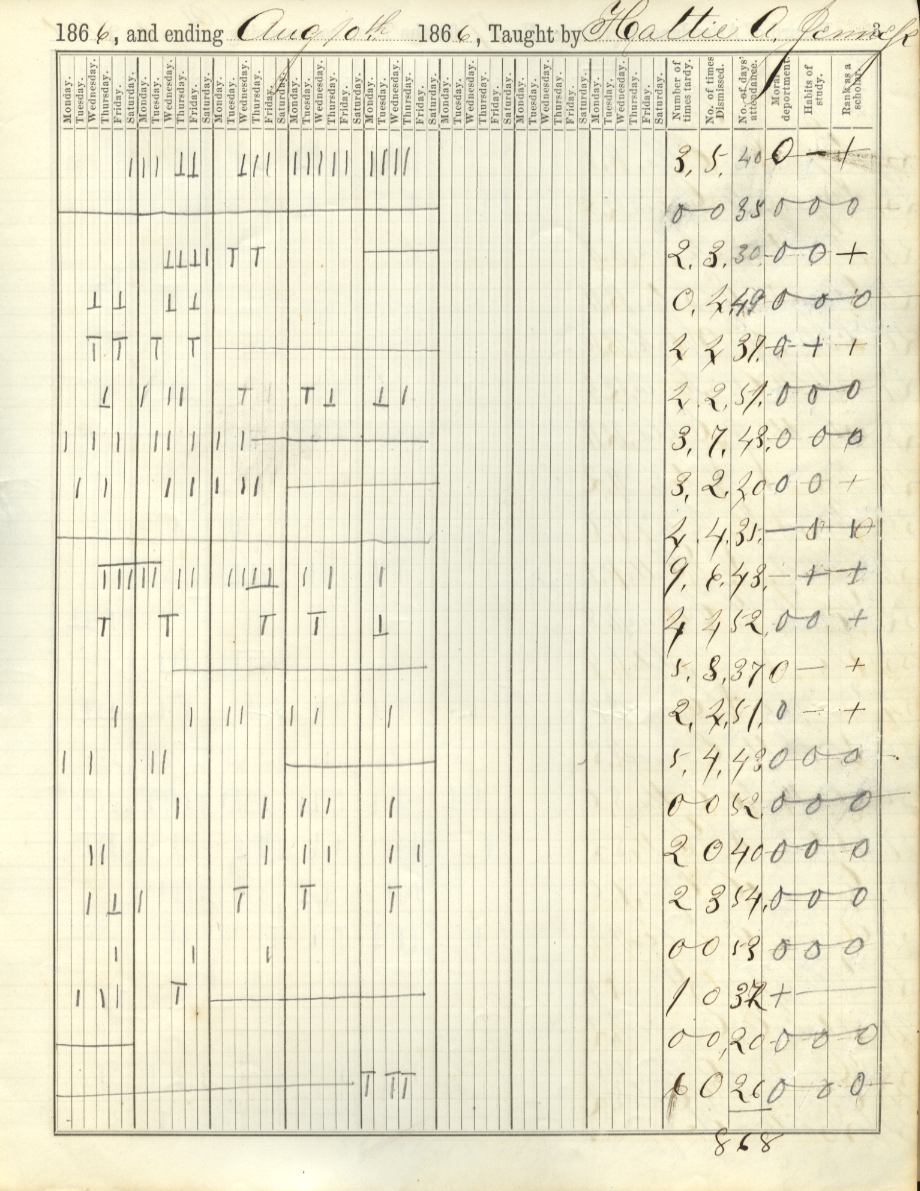 1866, and ending Aug 10th 1866, Taught by Hattie A. Jenness 3
Monday. Tuesday. Wednesday. Thursday. Friday. Saturday. Monday. Tuesday. Wednesday. Thursday. Friday. Saturday. Monday. Tuesday. Wednesday. Thursday. Friday. Saturday. Monday. Tuesday. Wednesday. Thursday. Friday. Saturday. Monday. Tuesday. Wednesday. Thursday. Friday. Saturday. Monday. Tuesday. Wednesday. Thursday. Friday. Saturday. Monday. Tuesday. Wednesday. Thursday. Friday. Saturday. Monday. Tuesday. Wednesday. Thursday. Friday. Saturday. Number of times tardy. No. of times Dismissed. No. of days' attendance. Moral deportment. Habits of study. Rank as a scholar.
3. 5. 40 0 - +
0 0 35 0 0 0
2. 3. 30. 0 0 +
0. 2. 49 0 0 0
2 2 37. 0 + +
2. 2. 51. 0 0 0
3. 7. 43. 0 0 0
3. 2. 20 0 0 +
2. 4. 31. -
9. 6. 43. - + +
4 4 52. 0 0 +
5. 8. 37 0 - +
2. 2. 51. 0 - +
5. 4. 43. 0 0 0
0 0 52. 0 0 0
2 0 40 0 0 0
2 3 54. 0 0 0
0 0 53 0 0 0
1 0 +
0 0 20 0 0 0
0 26 0 0 0
868